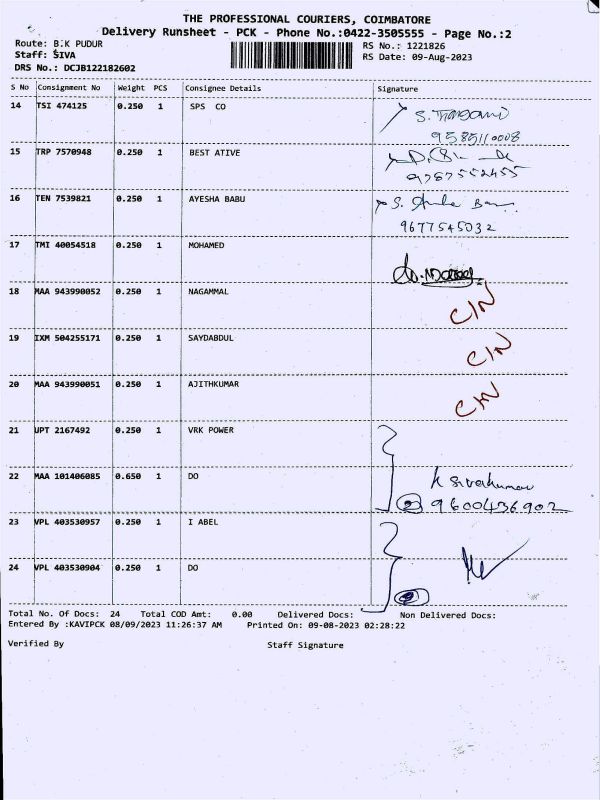 THE PROFESSIONAL COURIERS, COIMBATORE
Delivery Runsheet - PCK - Phone No.:0422-3505555 - Page No.:2
Route: B.K PUDUR
RS No.: 1221826
Staff: SIVA
RS Date: 09-Aug-2023
DRS No.: DCJB122182602
S No Consignment No Weight PCS Consignee Details Signature
14 TSI 474125 0.250 1 SPS CO
9585110008
15 TRP 7570948 0.250 1 BEST ATIVE
9787552455
16 TEN 7539821 0.250 1 AYESHA BABU S.
9677545032
17 TMI 40054518 0.250 1 MOHAMED
18 MAA 943990052 0.250 1 NAGAMMAL C/N
19 IXM 504255171 0.250 1 SAYDABDUL C/N
20 MAA 943990051 0.250 1 AJITHKUMAR C/N
21 UPT 2167492 0.250 1 VRK POWER
22 MAA 101406085 0.650 1 DO K Sivakumar
2 9600436902
23 VPL 403530957 0.250 1 I ABEL
24 VPL 403530904 0.250 1 DO
2
Total No. Of Docs: 24 Total COD Amt: 0.00 Delivered Docs: Non Delivered Docs:
Entered By :KAVIPCK 08/09/2023 11:26:37 AM Printed On: 09-08-2023 02:28:22
Verified By Staff Signature